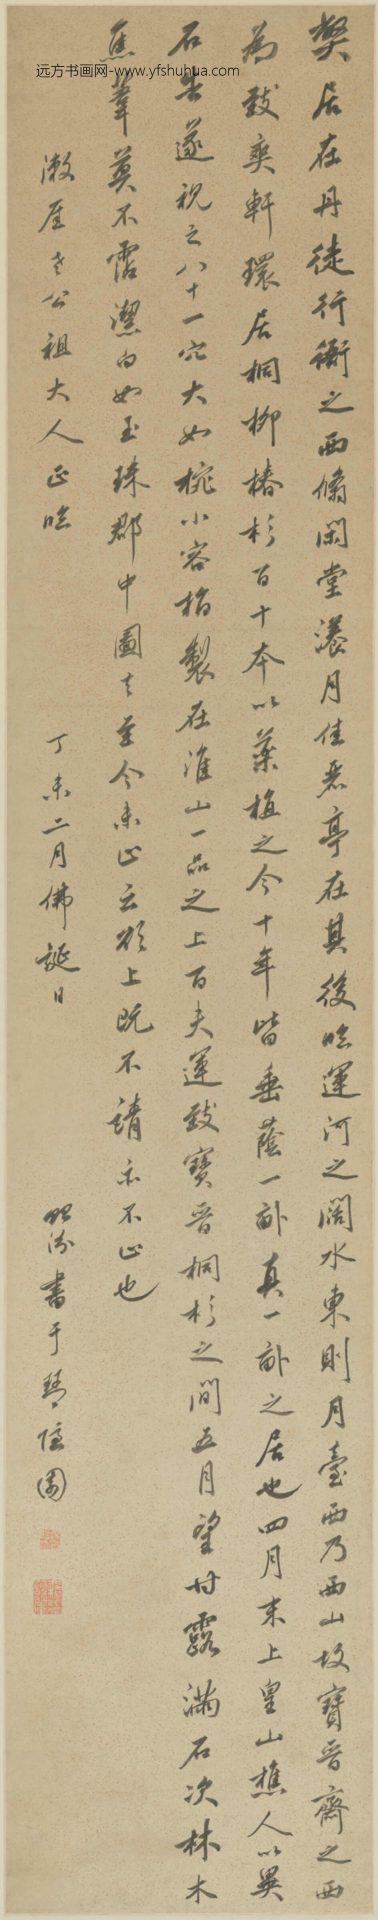 樊居在丹徒行衙之西翛閑堂漾月佳麗亭在其後臨運河之闊水東則月臺西乃西山故寶晉齋之西
為致爽軒環居桐柳椿杉百十本以藥植之今十年皆垂蔭一畝真一畝之居也四月末上皇山樵人以異
石告遂視之八十一穴大如椀小容指製在淮山一品之上百夫運致寶晉桐杉之間五月望甘露滿石次林木
焦葦莫不霑潔白如玉珠郡中圖去至今未止云欲上既不請亦不止也
老公祖大人正臨
丁未二月佛誕日
書于琴隱園
远方书画网-www.yfshuhua.com